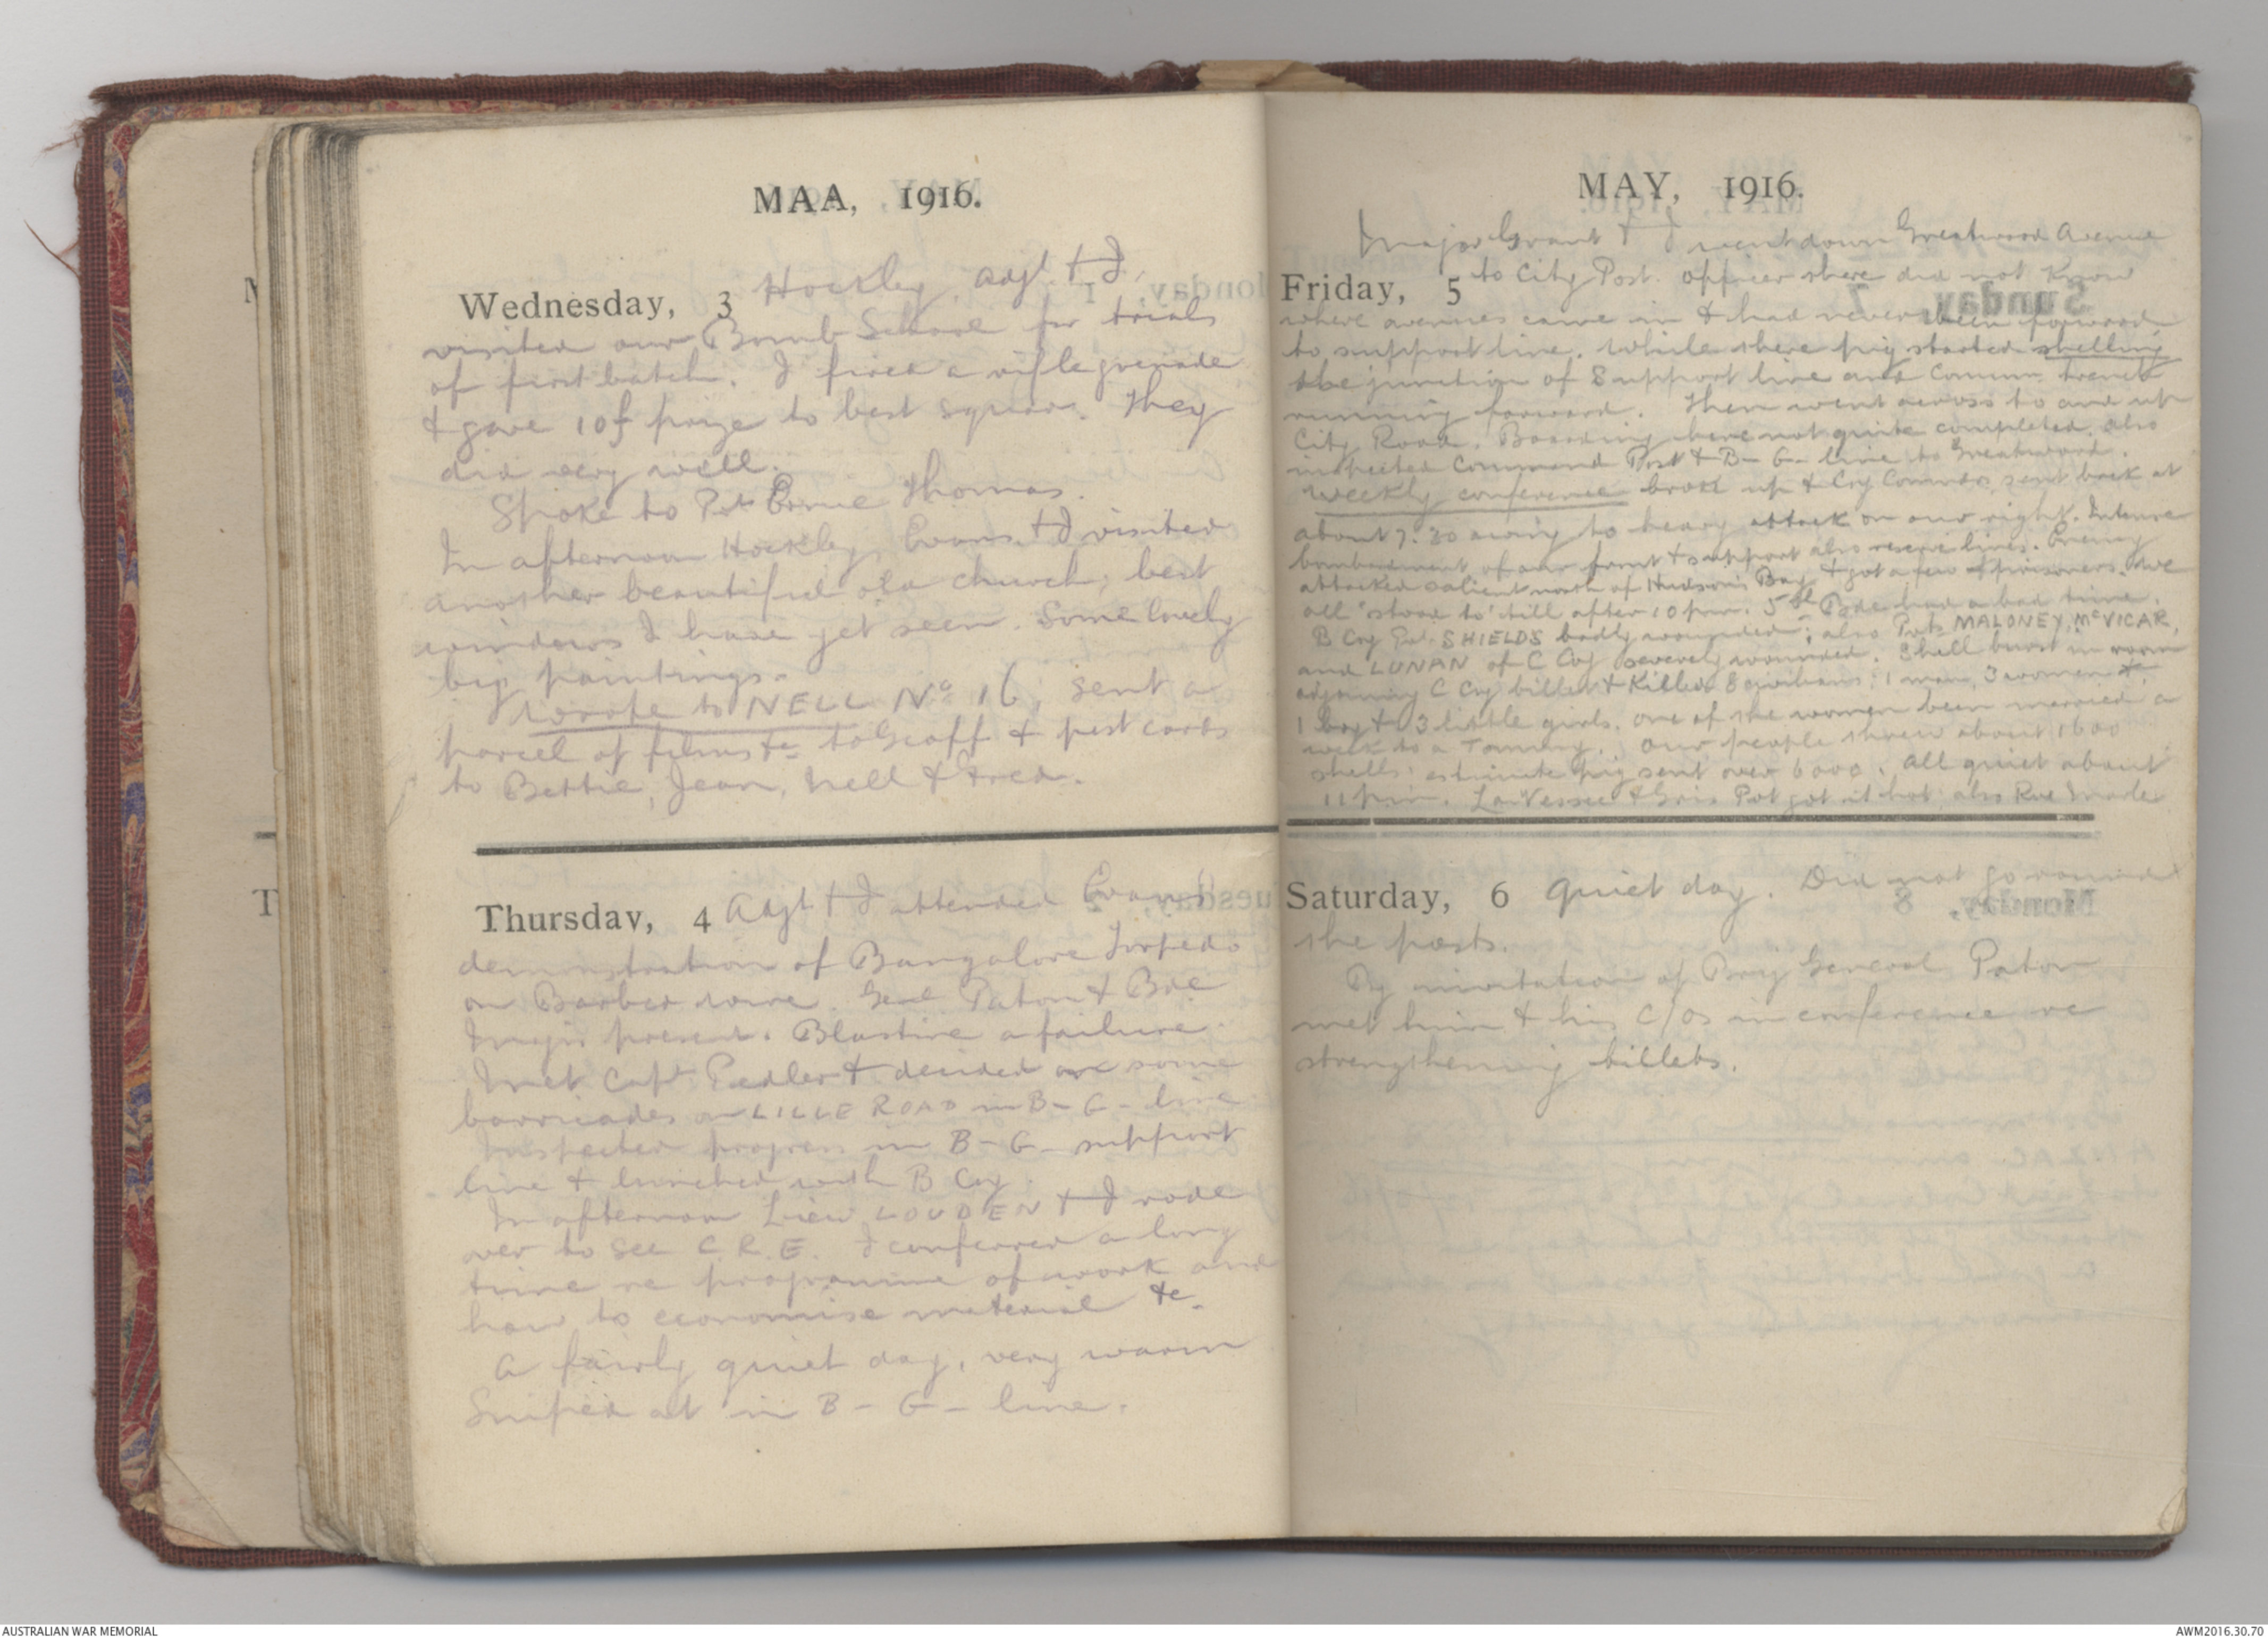 MAA, 1916.
Wednesday, 3 Hockley, Adjt. & I
visited our Bomb School for trials
of first batch. I fired a rifle grenade
& gave 10f prize to best squad. They
did very well.
Spoke to Pte Ernie Thomas.
In afternoon Hockley, Evans & I visited
another beautiful old church; best
windows I have yet seen. Some lovely
big paintings.
Wrote to NELL No 16, sent a
parcel of films &c to Geoff & post cards
to Bettie, Jean, Nell & Fred.
Thursday, 4 Adjt & I attended Evans'
demonstration of Bangalore Torpedo
on Barbed wire. Genl Paton & Bde
Major present. Blastine a failure.
Met Capt Pedler & decided on some
barricades on LILLE ROAD in B-G- line
Inspected progress in B-G- support
line & lunched with B Coy.
In afternoon Lieu LOUDEN & I rode
over to see C.R.E. I conferred a long
time re programme of work and
how to economise material &c.
A fairly quiet day, very warm
Sniped at in B-G- line.
MAY, 1916.
Major Grant & I went down Greatwood Avenue
Friday, 5 to City Post. Officer there did not know
where avenues came in & had never been forward
to support line. While there pig started shelling
the junction of Support line and Commn trench
running forward. Then went across to and up
City Road. Boarding here not quite completed, also
inspected Command Post & B-G- line to Greatwood.
Weekly conference broke up & Coy Commdrs sent back at
about 7.30 owing to heavy attack on our right. Intense
bombardment of our front & support also reserve lines. Enemy
attacked salient north of Hudson's Bay & got a few prisoners. We
all 'stood to' till after 10 pm. 5th Bde had a bad time.
B Coy Pte SHIELDS badly wounded; also Pts MALONEY, McVICAR,
and LUNAN of C Coy severely wounded. Shell burst in room
adjoining C Coy billet & killed 8 civilians; 1 man, 3 women &
1 boy & 3 little girls. One of the women been married a
week to a Tommy. Our people threw about 1600
shells: estimate pig sent over 6000. All quiet about
11 pm. La Vesee & Gris Pot got it hot also Rue
Saturday, 6 Quiet day. Did not go round
the posts.
By invitation of Brig General Paton
met him & his C/Os in conference re
strengthening billets.
AUSTRALIAN WAR MEMORIAL
AWM2016.30.70